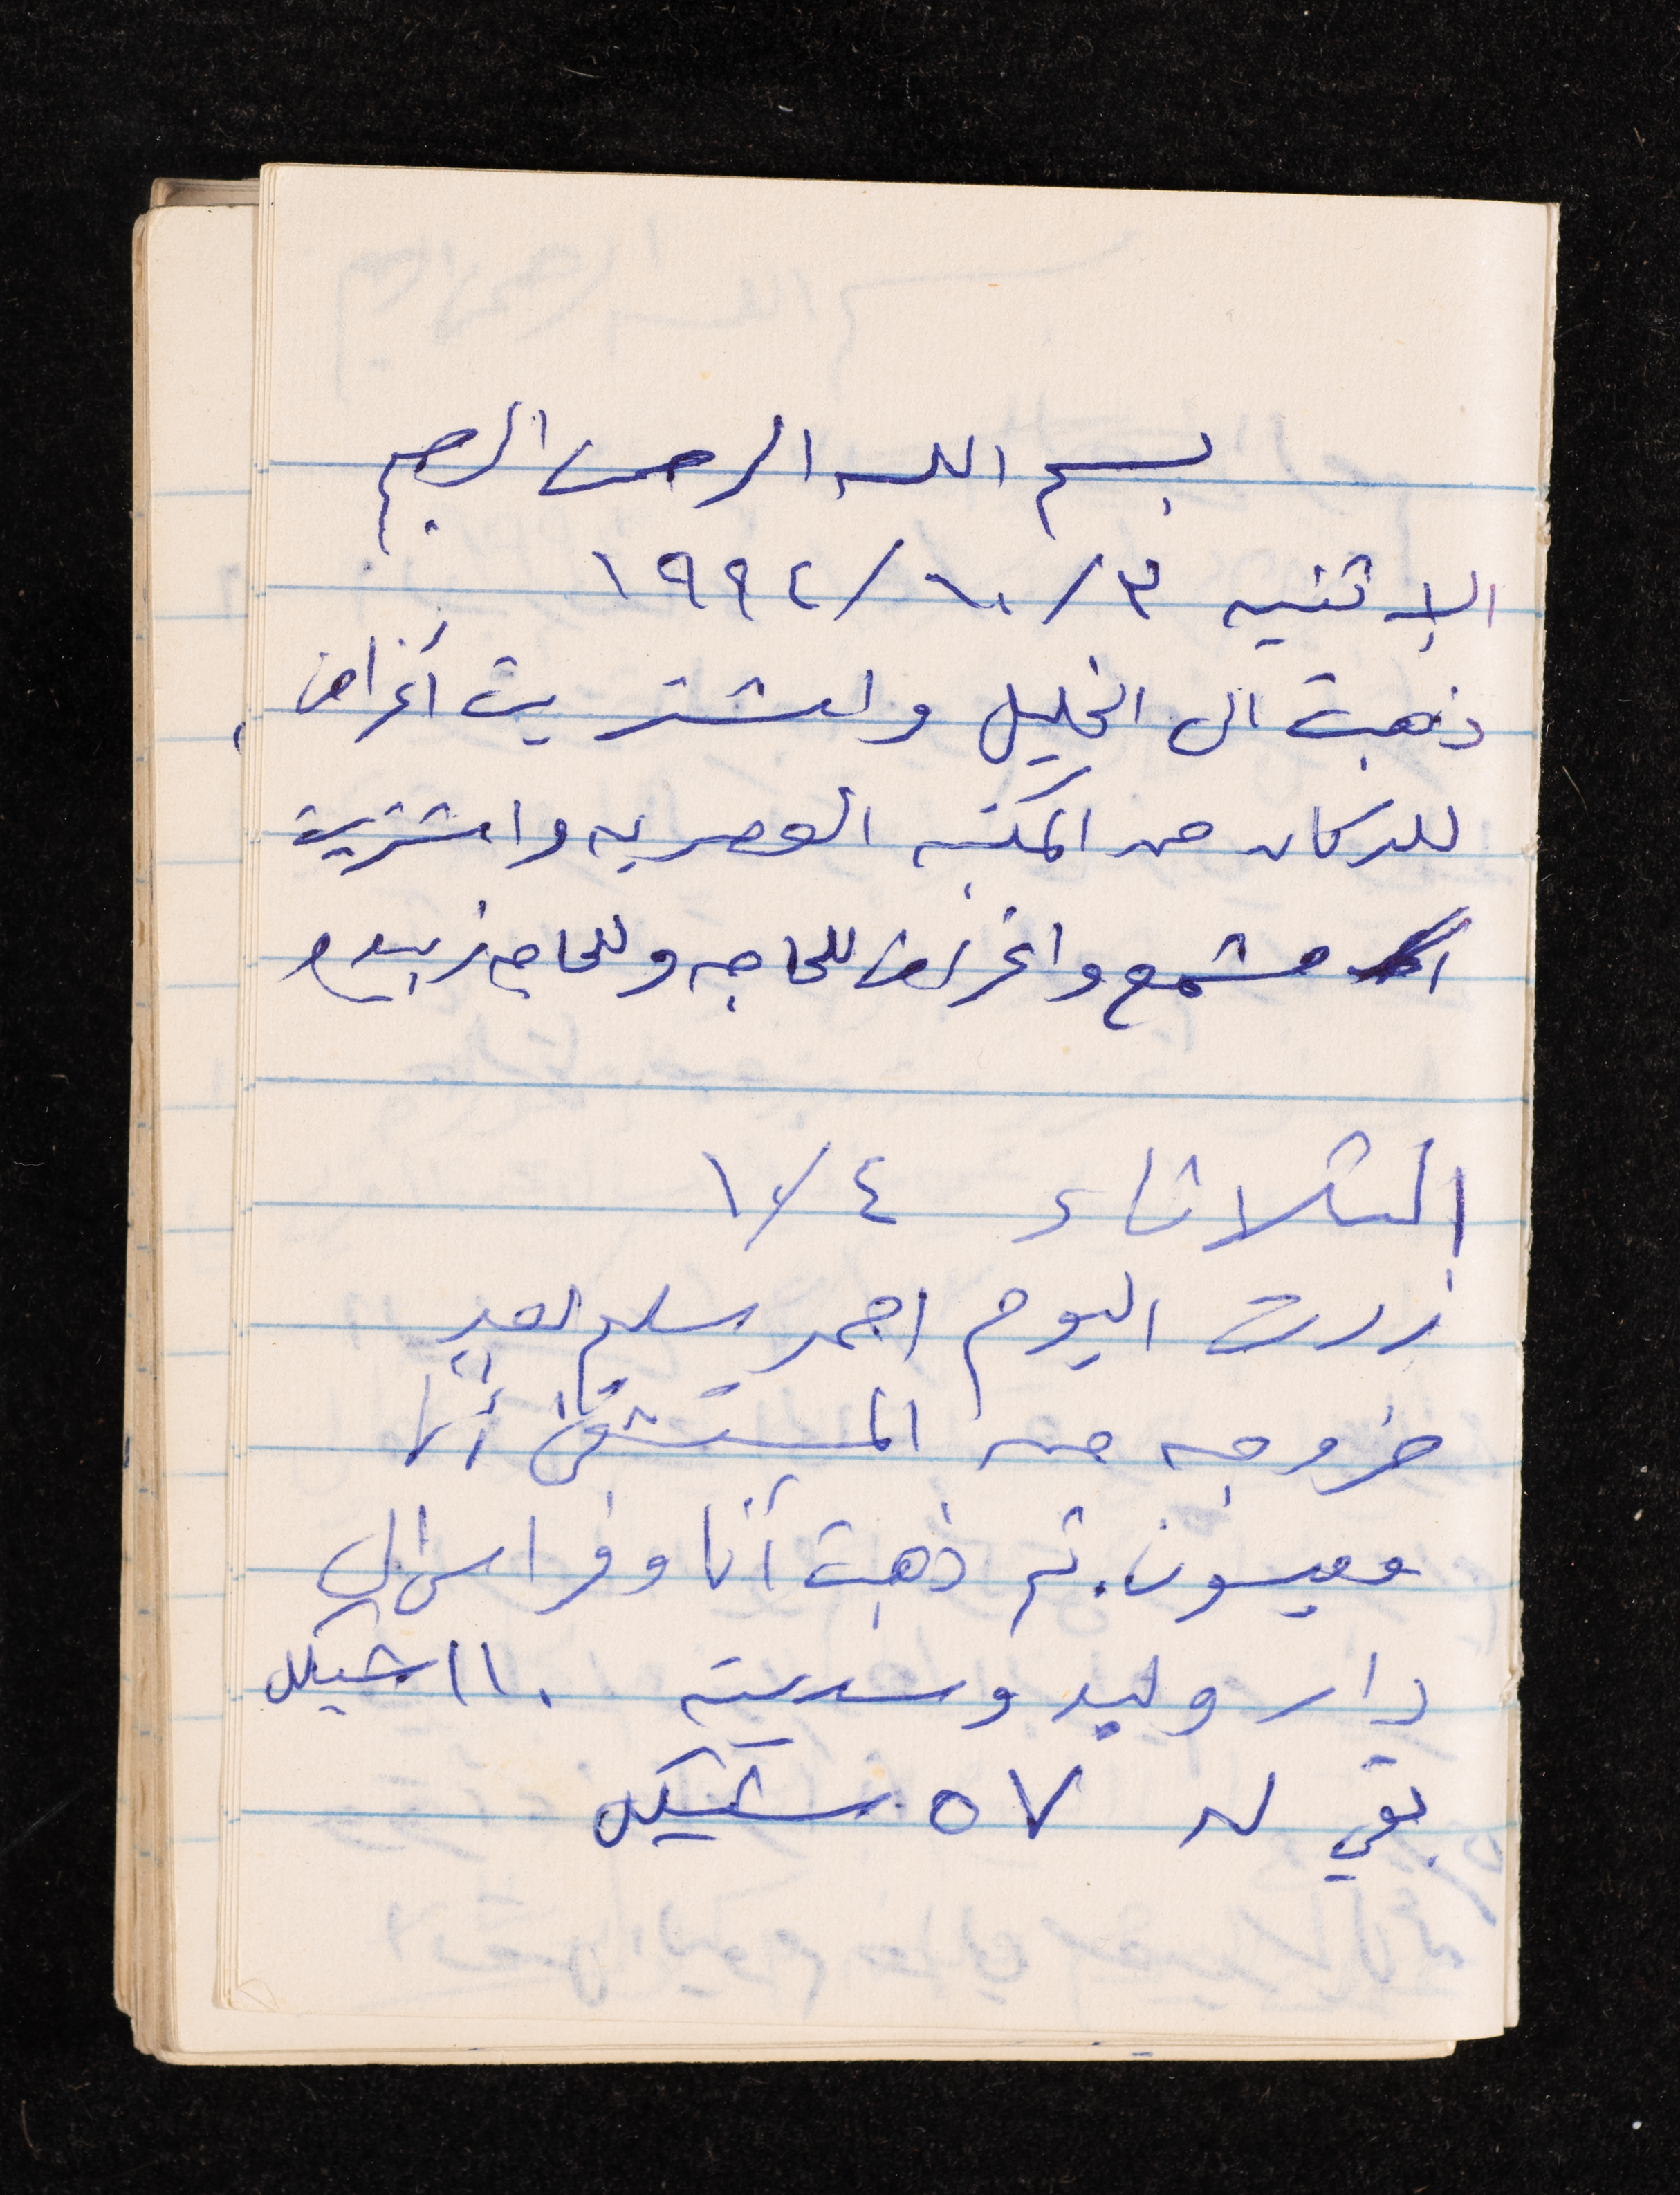 بسم الله الرحمن الرحيم
الاثنين ٣/١٠/١٩٩٤
ذهبت الى الخليل واشتريت أغراض
للدكان من المكتبه العصريه واشتريت
مشمع واغراض للحاجه وللحاج زبيده
الثلاثاء ٤/١٠
زرت اليوم احمد سليم بعد
خروجه من المستشفى أنا
وميسون. ثم ذهبت أنا وفراس الى
دار وليد وسديته ١١٠ شيكل
بقي له ٥٧ شيكل